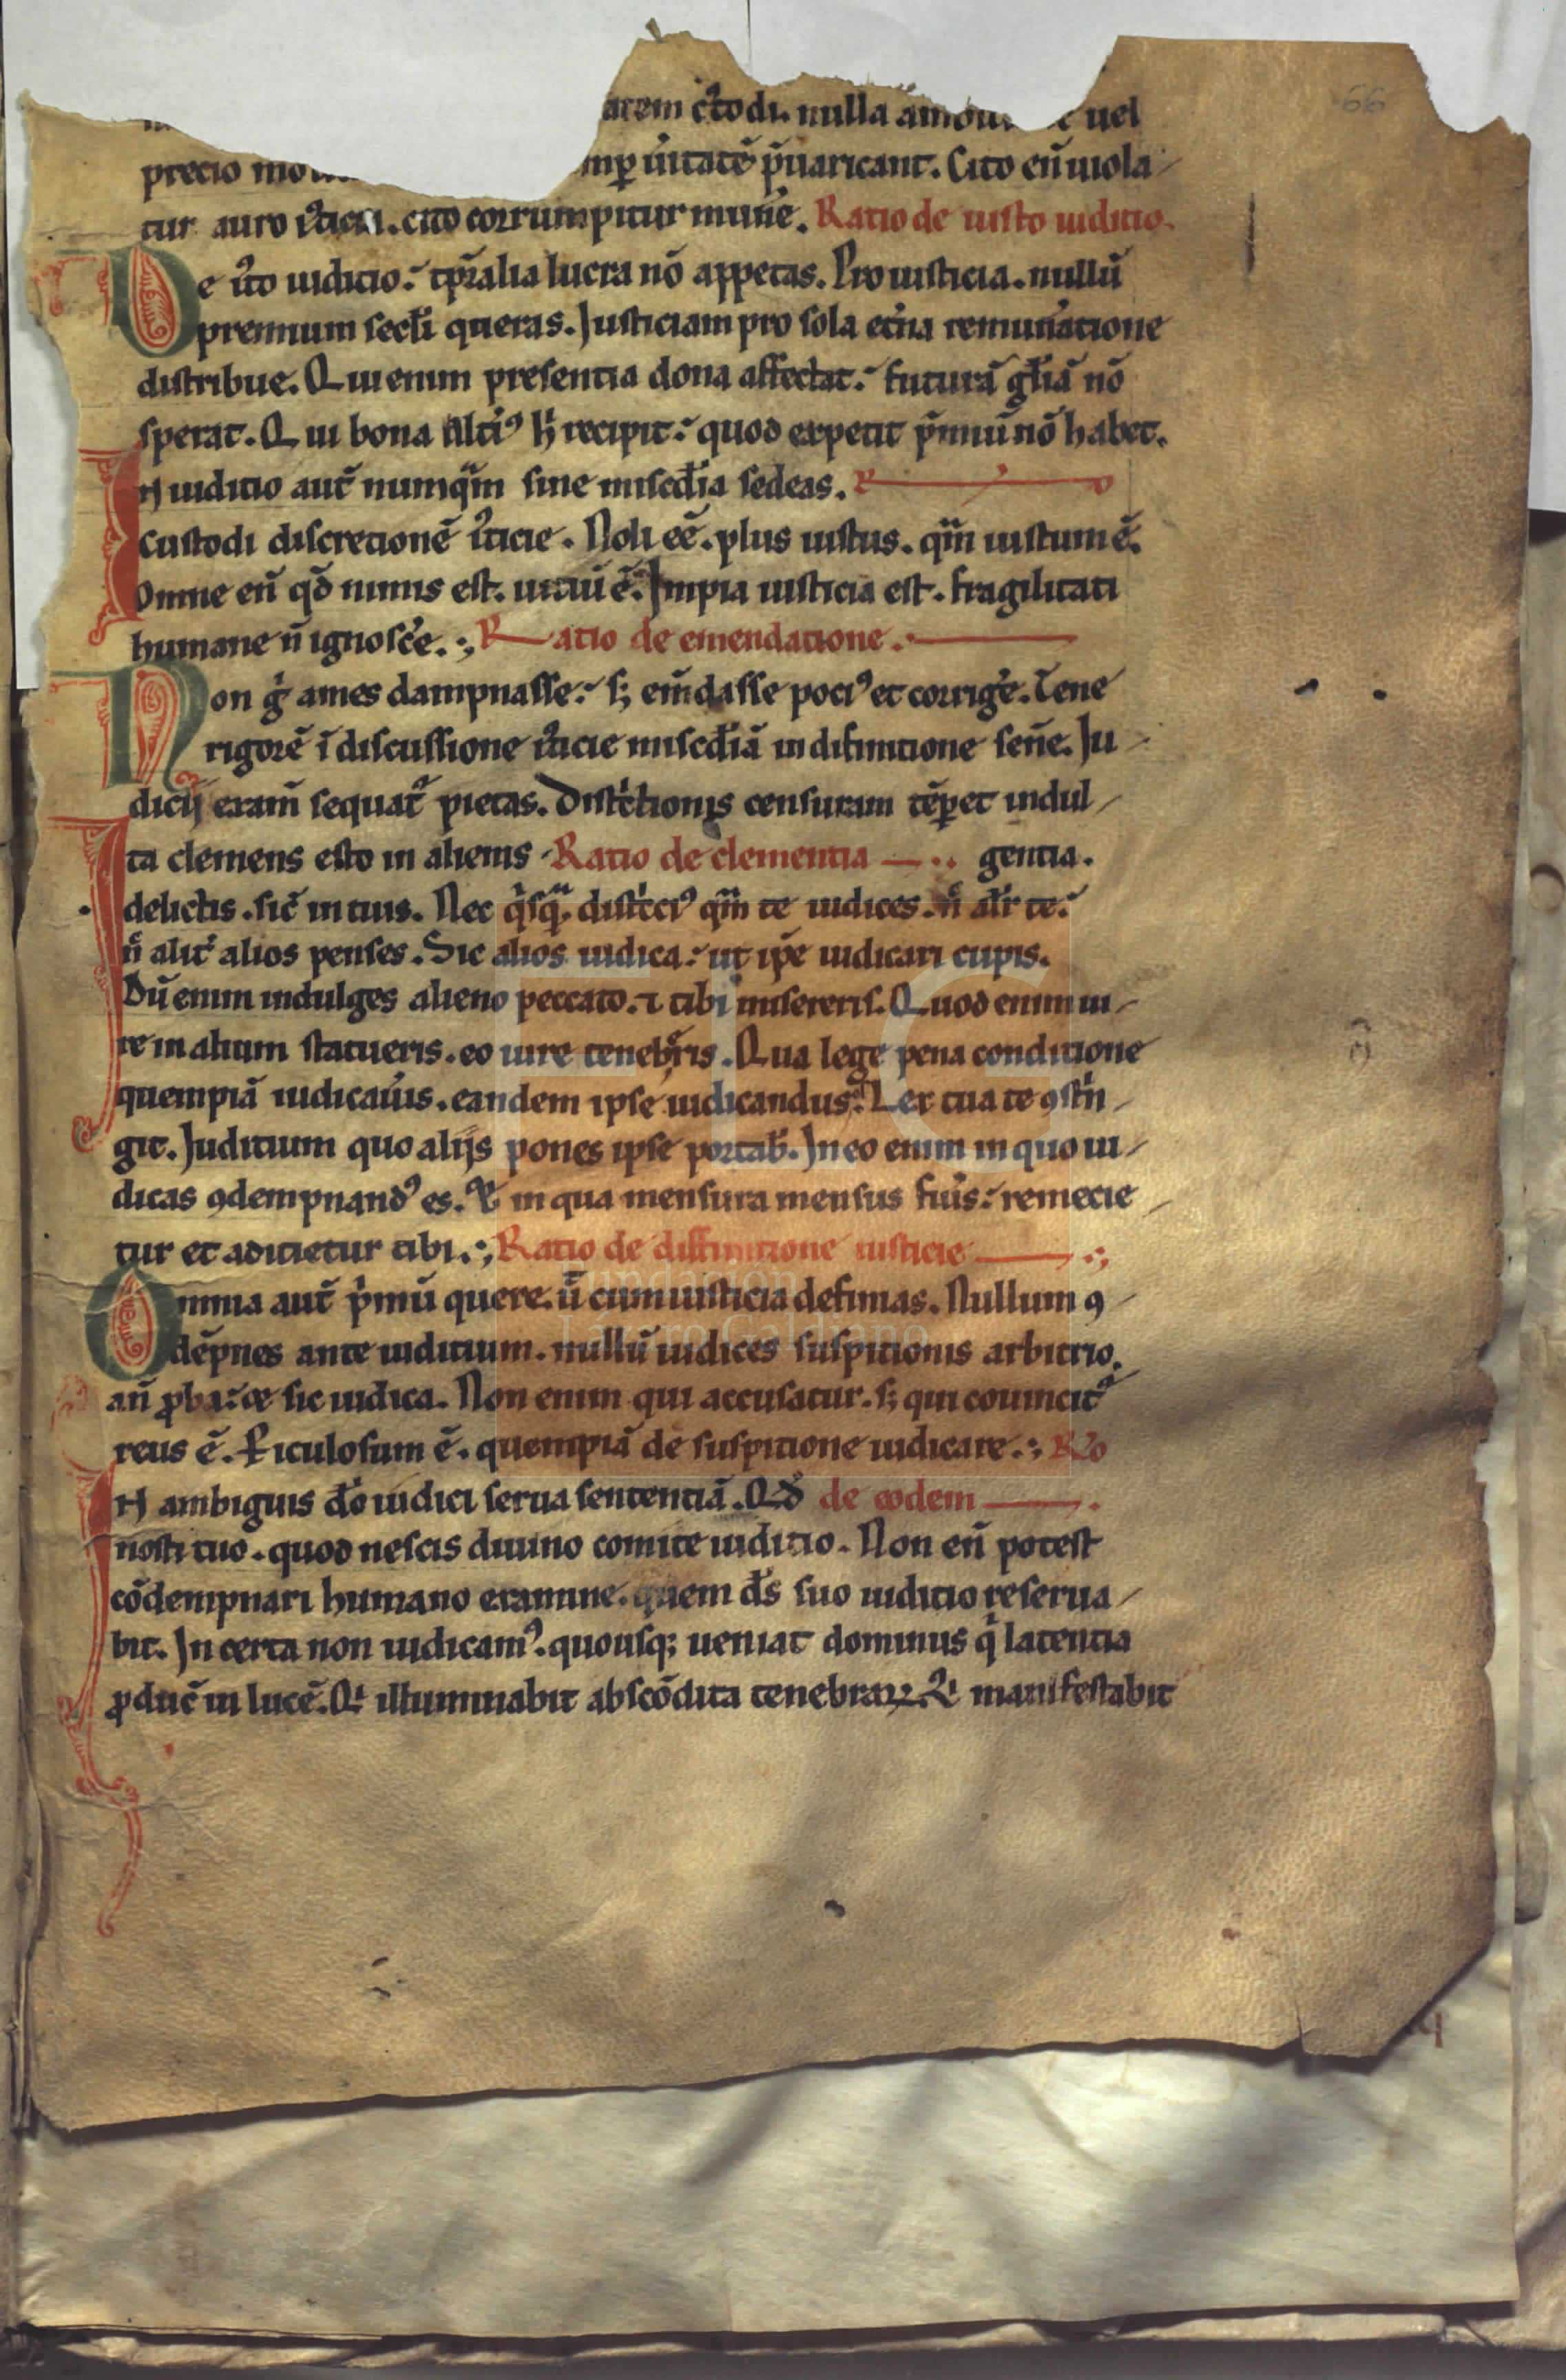 arem c̓todi. nulla amou uel
precio mo mꝑ u̓itatē p̄uaricant. Cito eñ uiola
tur auro i̓ticia. cito corrumpitur mun̄e. Ratio de iusto iuditio.
De i̓to iudicio. tp̄ralia lucra nō appetas. Pro iusticia. nullū
premium secl̄i queras. Justiciam pro sola et̓na remun̓atione
distribue. Qui enim presentia dona affectat. futurā gl̄iā nō
sperat. Qui bona Alti᷒ h̓ recipit. quod expetit p̄miū nō habet.
In iuditio aut̄ numq̄m sine misc̄dia sedeas. R o
Custodi discretionē i̓ticie. Noli eē. plus iustus. qm̄ iustum ē.
Omne en̄ qd̄ nimis est. uitiū ē. Impia iusticia est. fragilitati
humane n̄ ignosc̓e. Ratio de emendatione.
Non g̓ ames dampnasse. s; em̄dasse poci᷒ et corrig̓e. Tene
rigorē ī discussione i̓ticie misc̄diā in difinitione sen̄e. Ju
dicij exam̄ sequat᷑ pietas. Dist̓ctionis censuram tēꝑet indul
Ita clemens esto in alienis. Ratio de clementia gentia.
delictis. sic̄ in tuis. Nec q̓sqᷓ. dist̓cci᷒ qm̄ te iudices. n̓ alr̄ te.
n̓ alit̄ alios penses. Sic alios iudica. ut ip̄e iudicari cupis.
Dū enim indulges alieno peccato. ⁊ tibi misereris. Quod enim iu
re in alium statueris. eo iure teneb̓ris. Qua lege pena conditione
quempiā iudicau̓is. eandem ipse iudicandus. Lex tua te ꝯstr̄i
git. Juditium quo alijs pones ipse portab̄. In eo enim in quo iu
dicas ꝯdempnand᷒ es. Et in qua mensura mensus fu̓is. remecie
tur et adicietur tibi. Ratio de diffinitione iusticie
Omnia aut̄ p̓mū quere. ū cum iusticia definias. Nullum ꝯ
dēpnes ante iuditium. nullū iudices suspitionis arbitrio.
an̄ ꝓba. et sic iudica. Non enim qui accusatur. s; qui conuincit᷑
reus ē. Ꝑiculosum ē. quempiā de suspitione iudicare. Ro
In ambiguis dō iudici serua sententiā. Qd̄ de eodem
nosti tuo. quod nescis diuino comite iuditio. Non en̄ potest
cōdempnari humano examine. quem ds̄ suo iuditio reserua
bit. In certa non iudicam᷒. quousq; ueniat dominus q̓ latentia
ꝓduc̄ in lucē. Q̓ illuminabit abscōdita tenebraꝝ. Et manifestabit
66
Fundación
Lázaro Galdiano